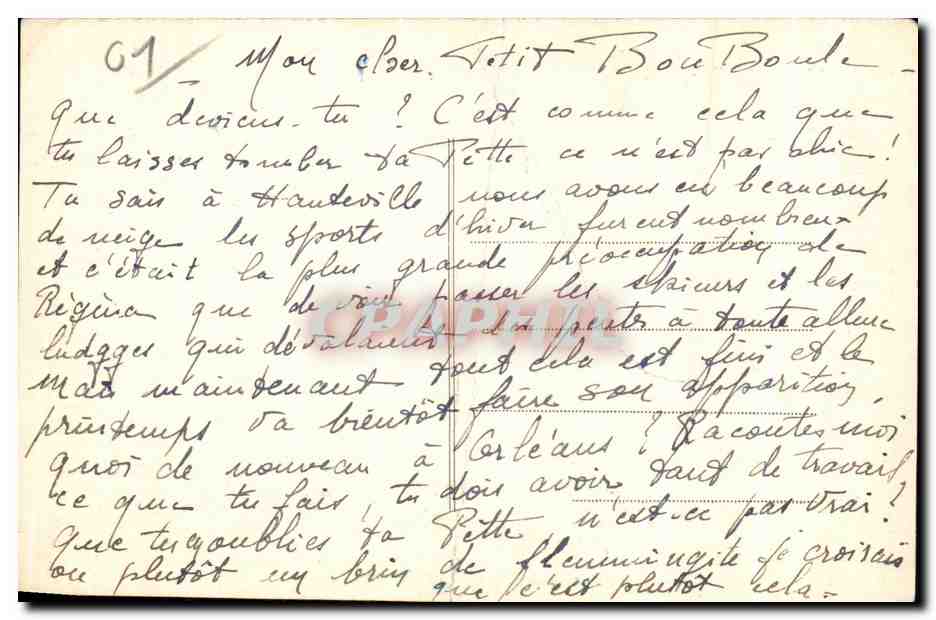 01
Mon cher Petit Bou Boule -
Que deviens-tu ? C'est comme cela que
tu laisses tomber ta Pette ce n'est pas chic !
Tu sais à Hauteville nous avons eu beaucoup
de neige les sports d'hiver furent nombreux
et c'était la plus grande préocupation de
Régina que de voir passer les skieurs et les
ludgges qui dévalaient les pentes à toute allure
Mais maintenant tout cela est fini et le
printemps va bientôt faire son apparition,
quoi de nouveau à Orléans ? Racontes moi
ce que tu fais, tu dois avoir tant de travail
que tu oublies ta Pette, n'est-ce pas vrai ?
ou plutôt un brin de flemmingite je croirais
que c'est plutôt cela -
CPAPHIL